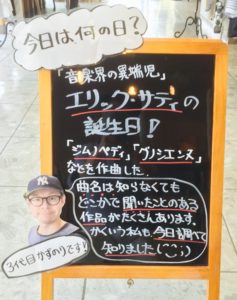 今日は、何の日？
「音楽界の異端児」
エリック・サティの
誕生日！
「ジムノペディ」「グノシエンヌ」
などを作曲した。
曲名は知らなくても
どこかで聞いたことのある
作品がたくさんあります。
かくいう私も、今日調べて
知りました(^-^;)
3代目かずのりです！